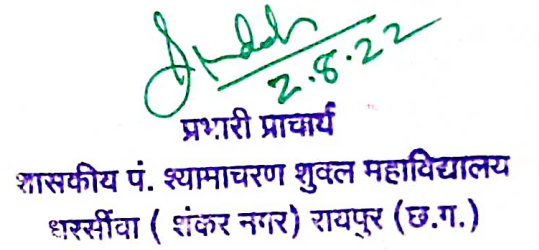 2.8.22
प्रभारी प्राचार्य
शासकीय पं. श्यामाचरण शुक्ल महाविद्यालय
धरसींवा ( शंकर नगर) रायपुर (छ.ग.)